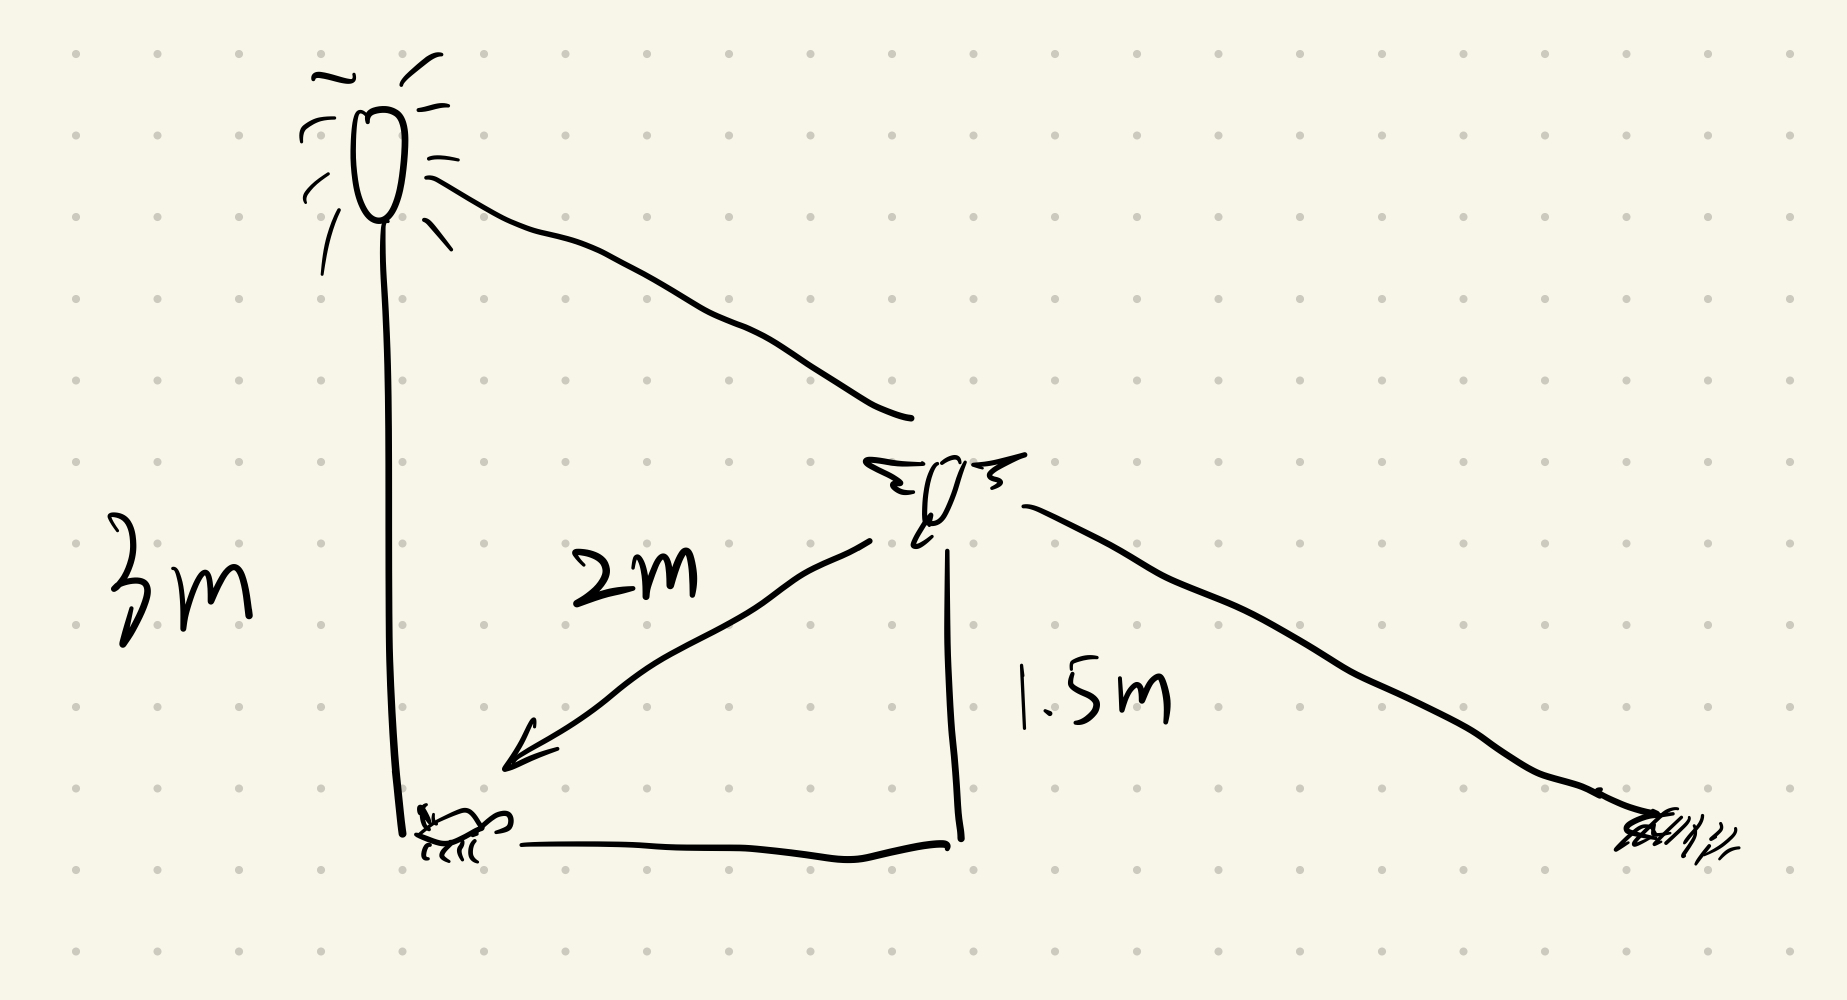 3m
2m
1.5m